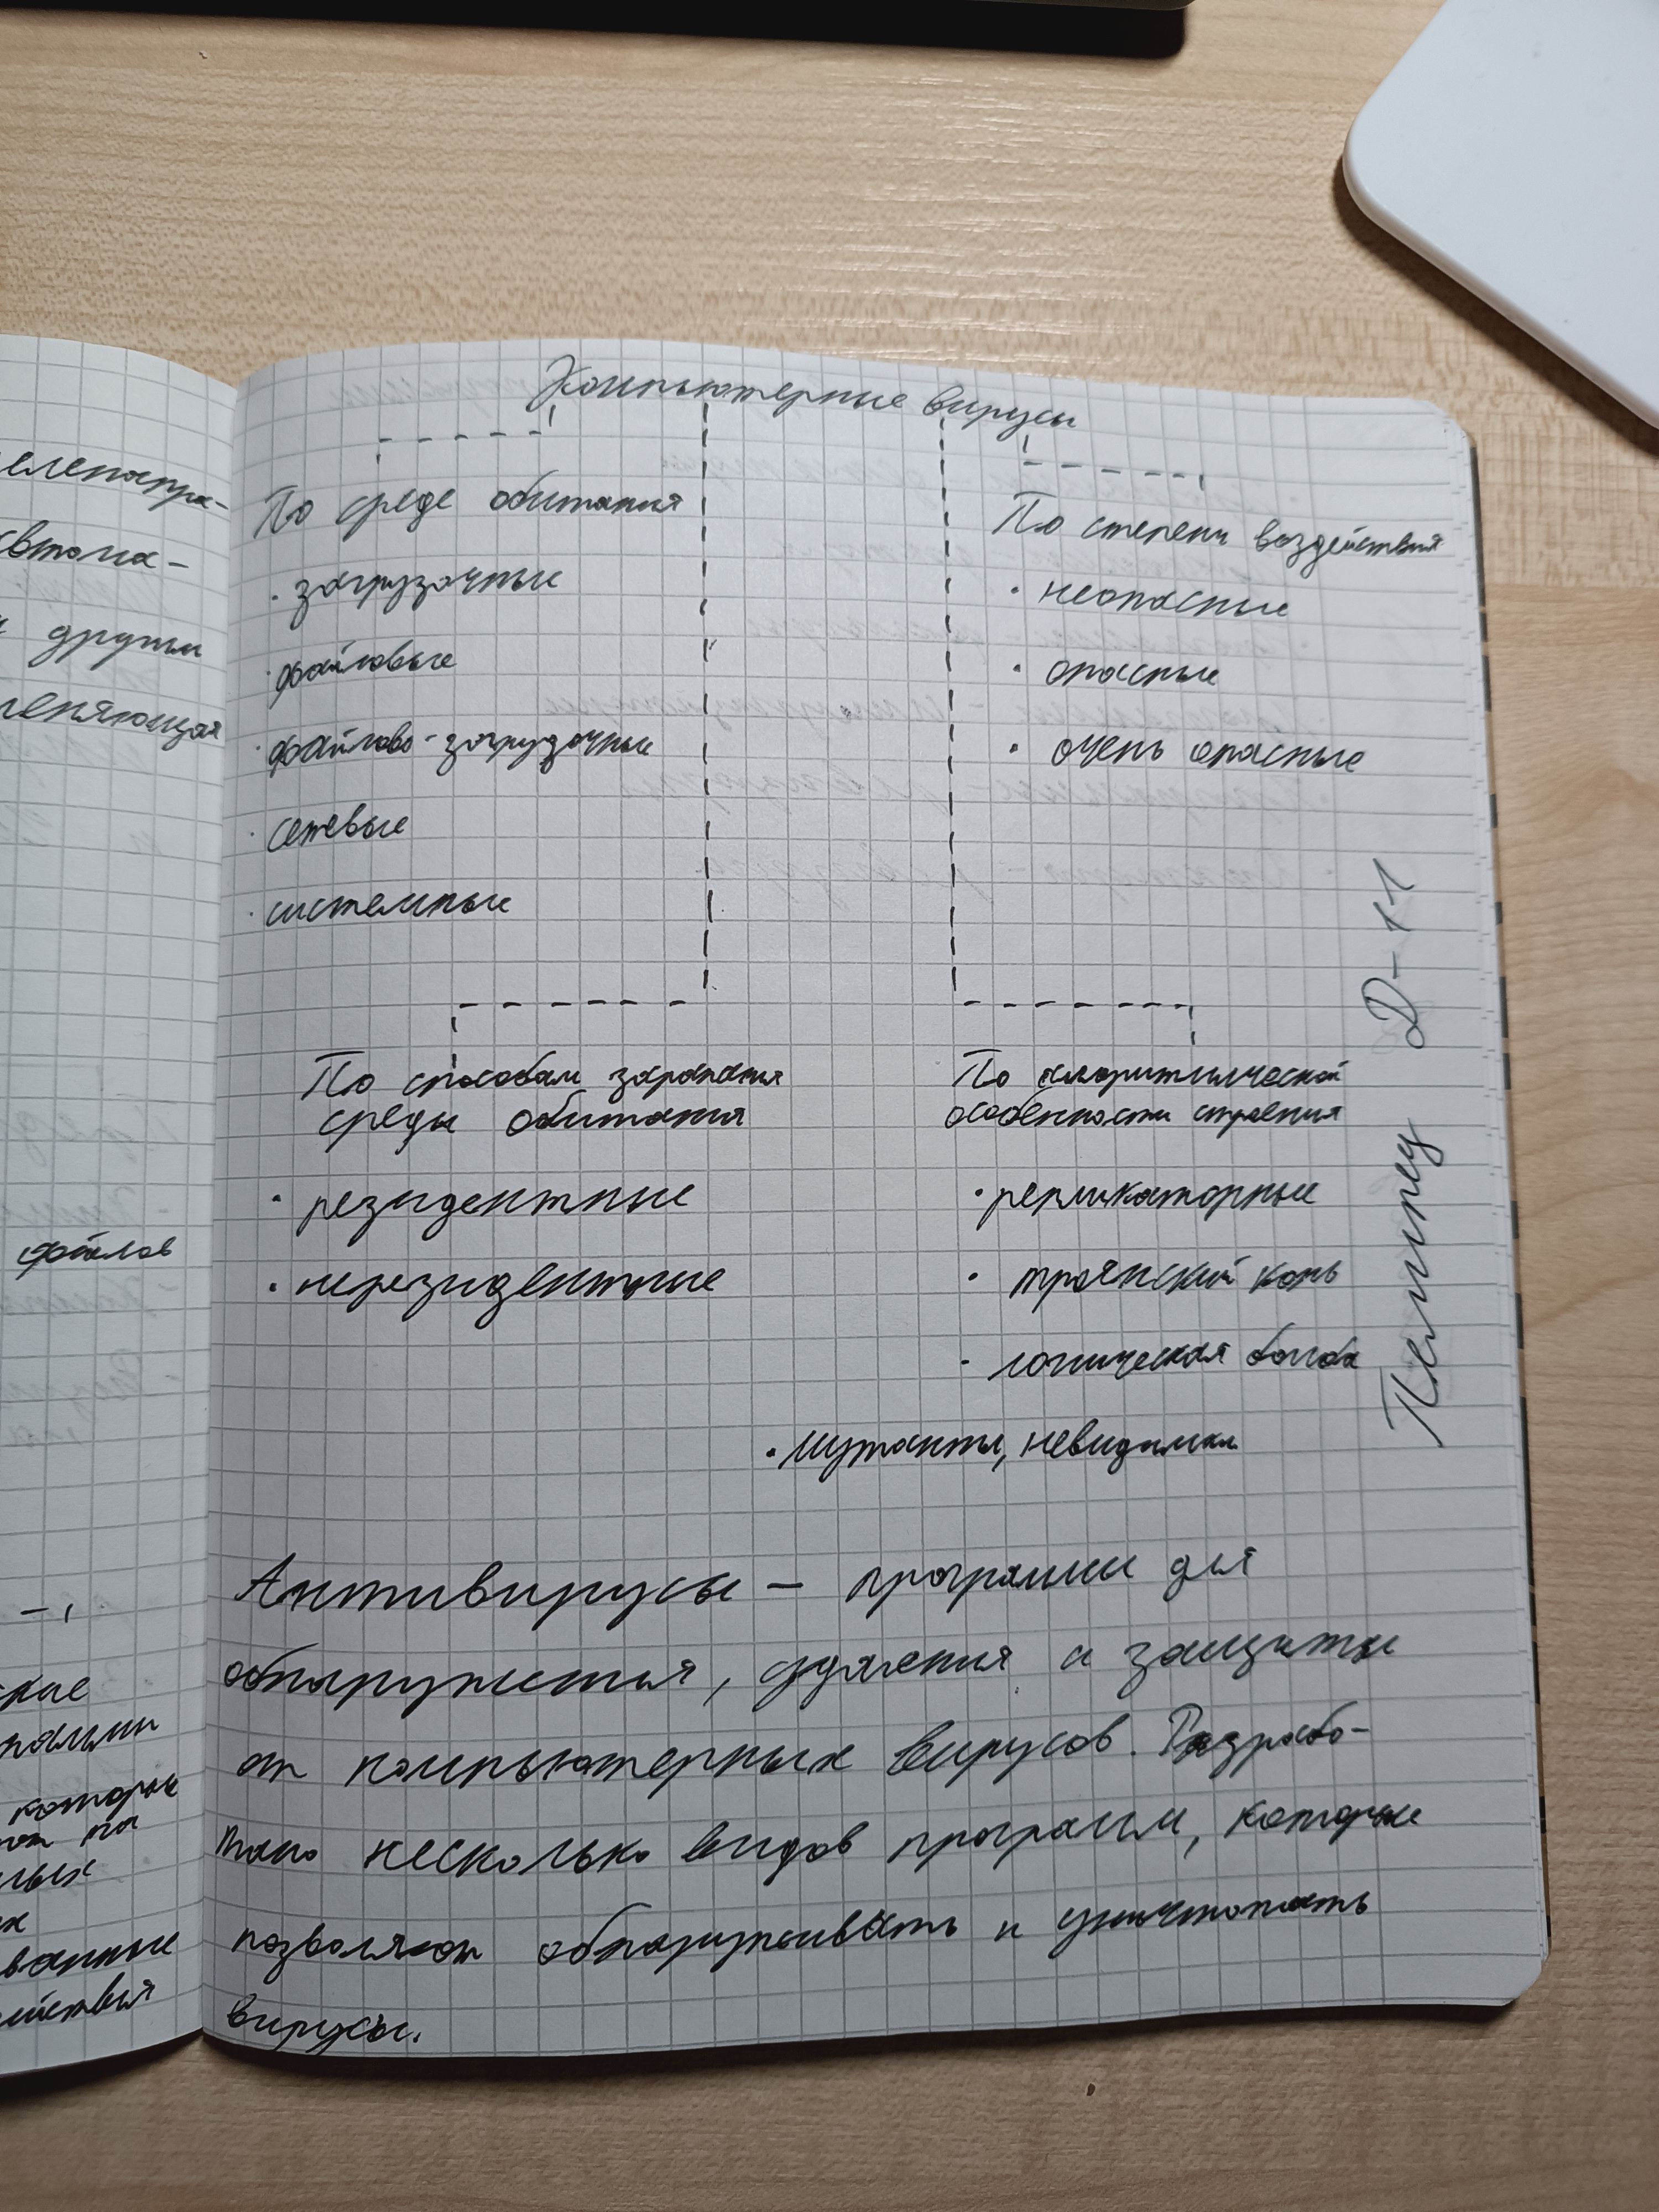 Компьютерные вирусы
По среде обитания
· загрузочные
· файловые
· файлово-загрузочные
· сетевые
· системные
По степени воздействия
· неопасные
· опасные
· очень опасные
По способам заражения
среды обитания
· резидентные
· нерезидентные
По алгоритмической
особенности строения
· репликаторные
· троянский конь
· логическая бомба
· мутанты, невидимки
Антивирусы – программы для
обнаружения, удаления и защиты
от компьютерных вирусов. Разрабо-
тано несколько видов программ, которые
позволяют обнаруживать и уничтожать
вирусы.
D-11
елепатра-
втома-
другим
меняющая
файлов
ские
которые
на
ванные